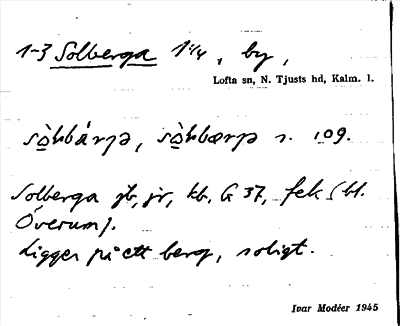 1-3 Solberga 1 1/4, by,
Lofta sn, N. Tjusts hd, Kalm. l.
s. 109.
Solberga jb, jr, kb, G 37, fek (bl.
Överum).
Ligger på ett berg, soligt.
Ivar Modéer 1945